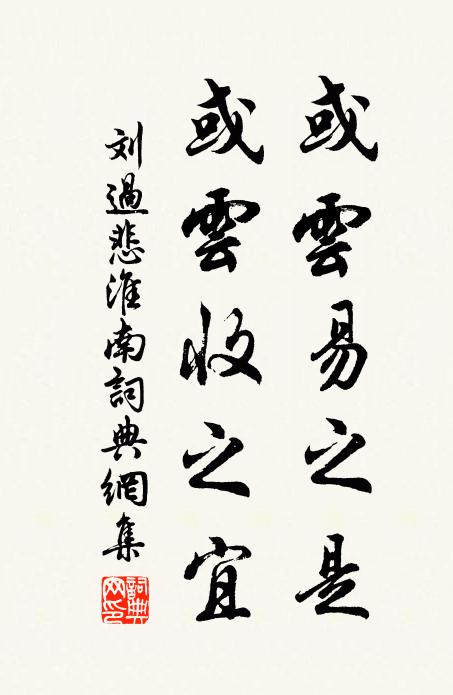 或雲易之是
或雲收之宜
刘過悲淮南詞典網集
詞典
网印